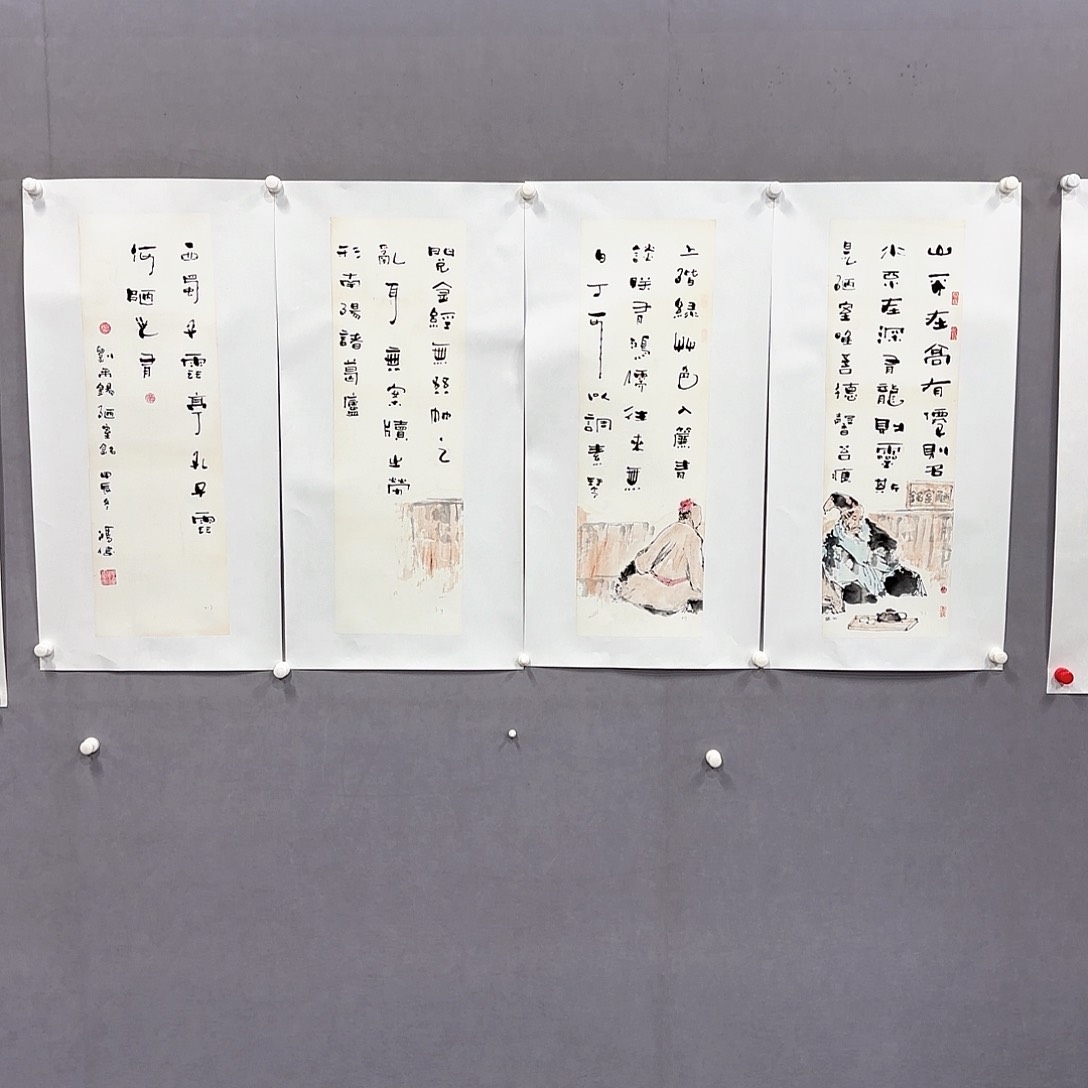 山不在高有僊則名
水不在深有龍則靈斯
是陋室唯吾德馨苔痕
陋室銘
上階綠艸色入簾青
談咲有鴻儒往來無
白丁可以調素琴
閱金經無絲竹之
亂耳無案牘之勞
形南陽諸葛廬
西蜀子雲亭孔子雲
何陋之有
劉禹錫陋室銘 甲辰